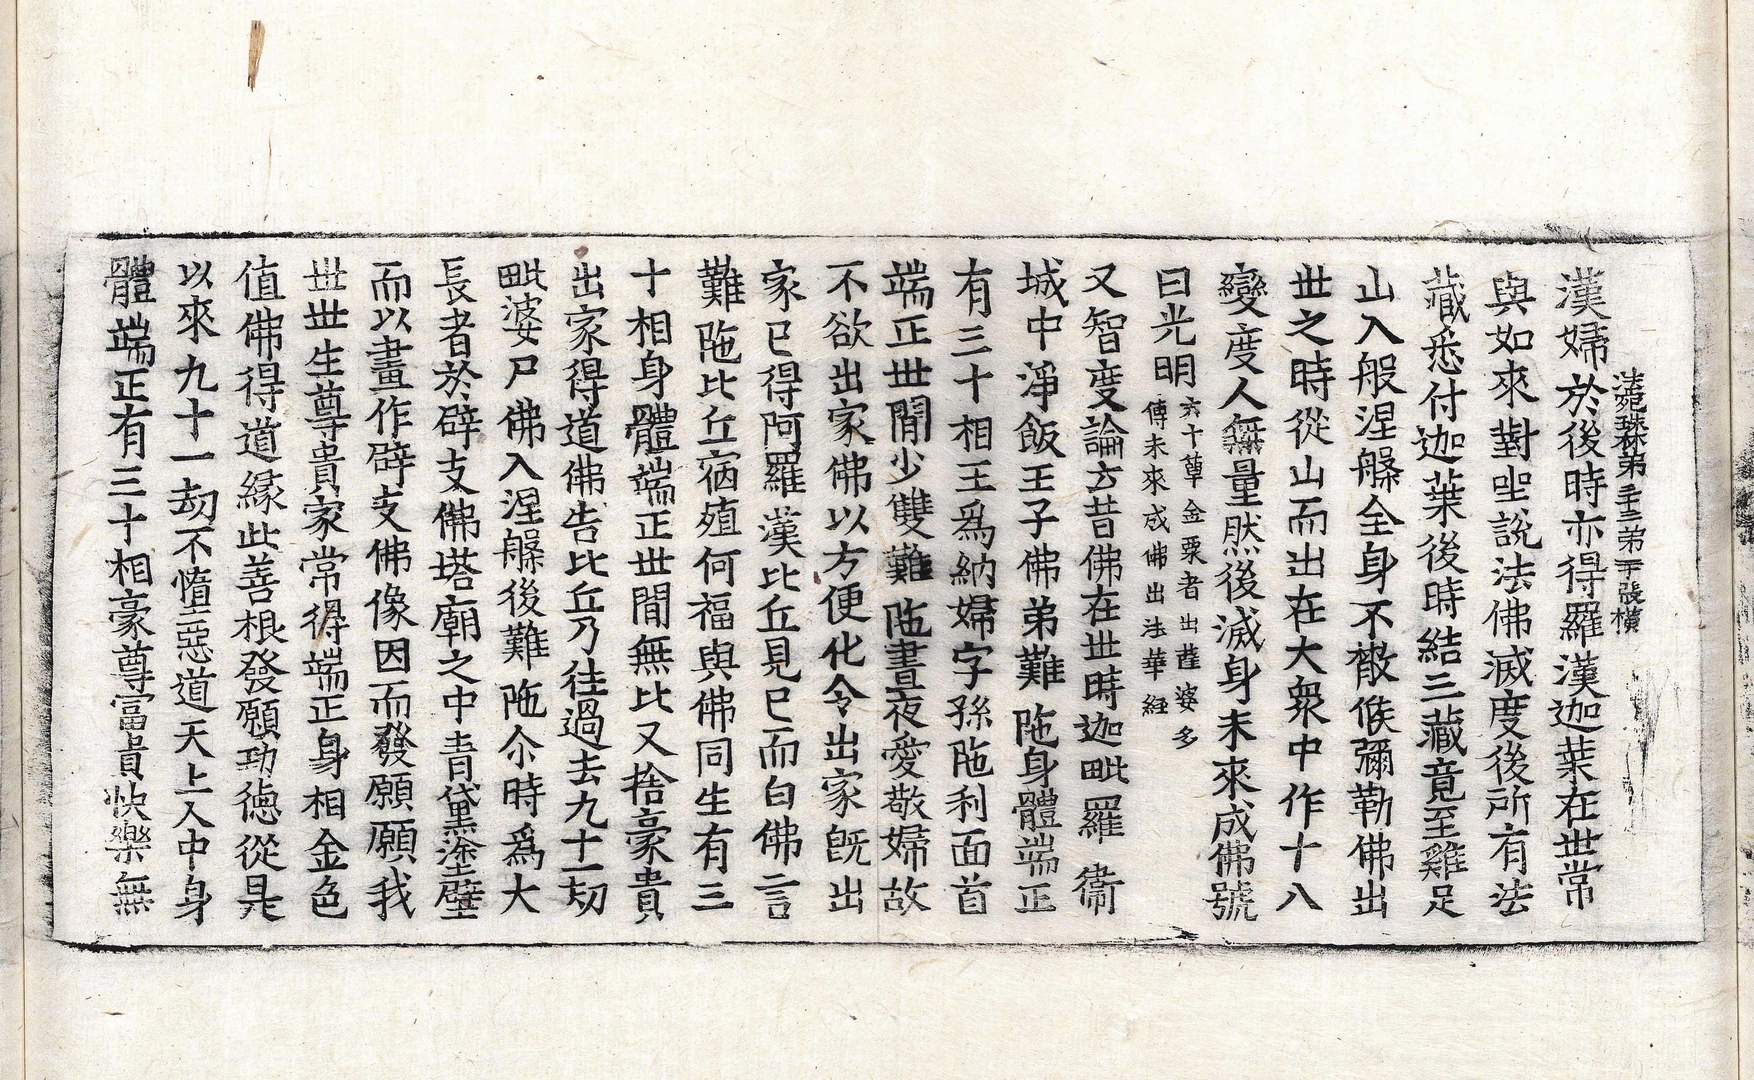 法苑珠林第二十二 第二十張 橫
漢婦於後時亦得羅漢迦葉在世常
與如來對坐說法佛滅度後所有法
藏悉付迦葉後時結三藏竟至雞足
山入般涅槃全身不散候彌勒佛出
世之時從山而出在大衆中作十八
變度人無量然後滅身未來成佛號
曰光明六十華金粟者出薩婆多
傳未來成佛出法華經
又智度論云昔佛在世時迦毗羅衛
城中淨飯王子佛弟難陁身體端正
有三十相王爲納婦字孫陁利面首
端正世間少雙難陁晝夜愛敬婦故
不欲出家佛以方便化令出家旣出
家已得阿羅漢比丘見已而白佛言
難陁比丘宿殖何福與佛同生有三
十相身體端正世間無比又捨豪貴
出家得道佛告比丘乃往過去九十一劫
毗婆尸佛入涅槃後難陁尒時爲大
長者於辟支佛塔廟之中青黛塗壁
而以畫作辟支佛像因而發願願我
世世生尊貴家常得端正身相金色
值佛得道緣此善根發願功德從是
以來九十一劫不墮惡道天上人中身
體端正有三十相豪尊富貴快樂無